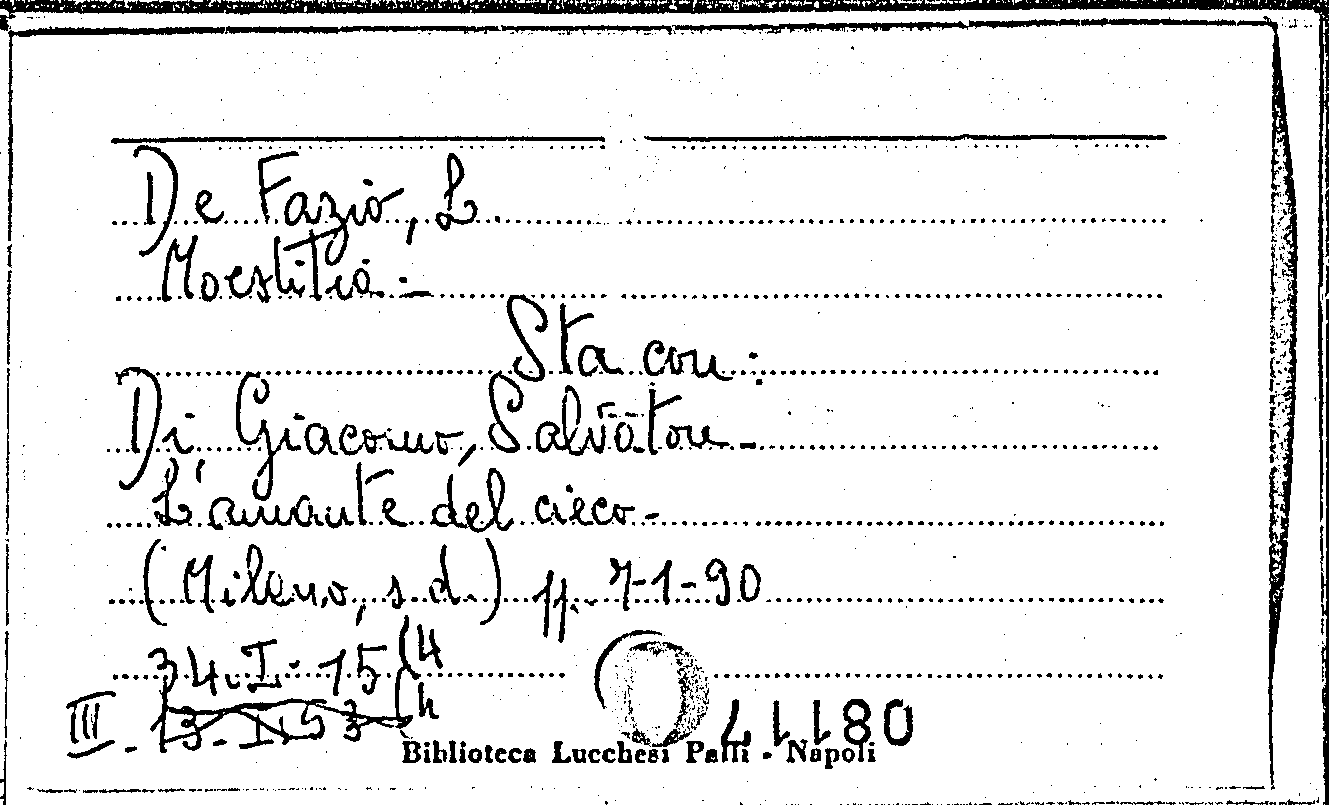 De Fazio, L.
Moestitia. -
Sta con:
Di Giacomo, Salvatore -
L'amante del cieco -
(Milano, s. d.) pp. 7-1-90
34. I. 15 (4
III - 13. I. 53 (4
Biblioteca Lucchesi Palli - Napoli